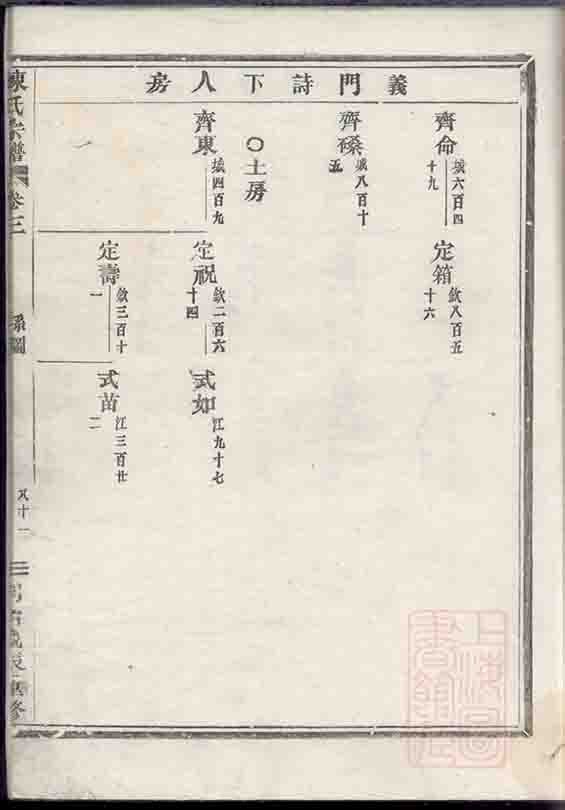 義門詩下人房
齊命 城六百四十九
定箱 欽八百五十六
齊磉 城八百十五
〇土房
齊東 城四百九
定祝 欽二百六十四
式如 江九十七
定壽 欽三百十一
式苗 江三百廿二
陳氏宗譜 卷三 系圖
八十一
上海圖書館藏